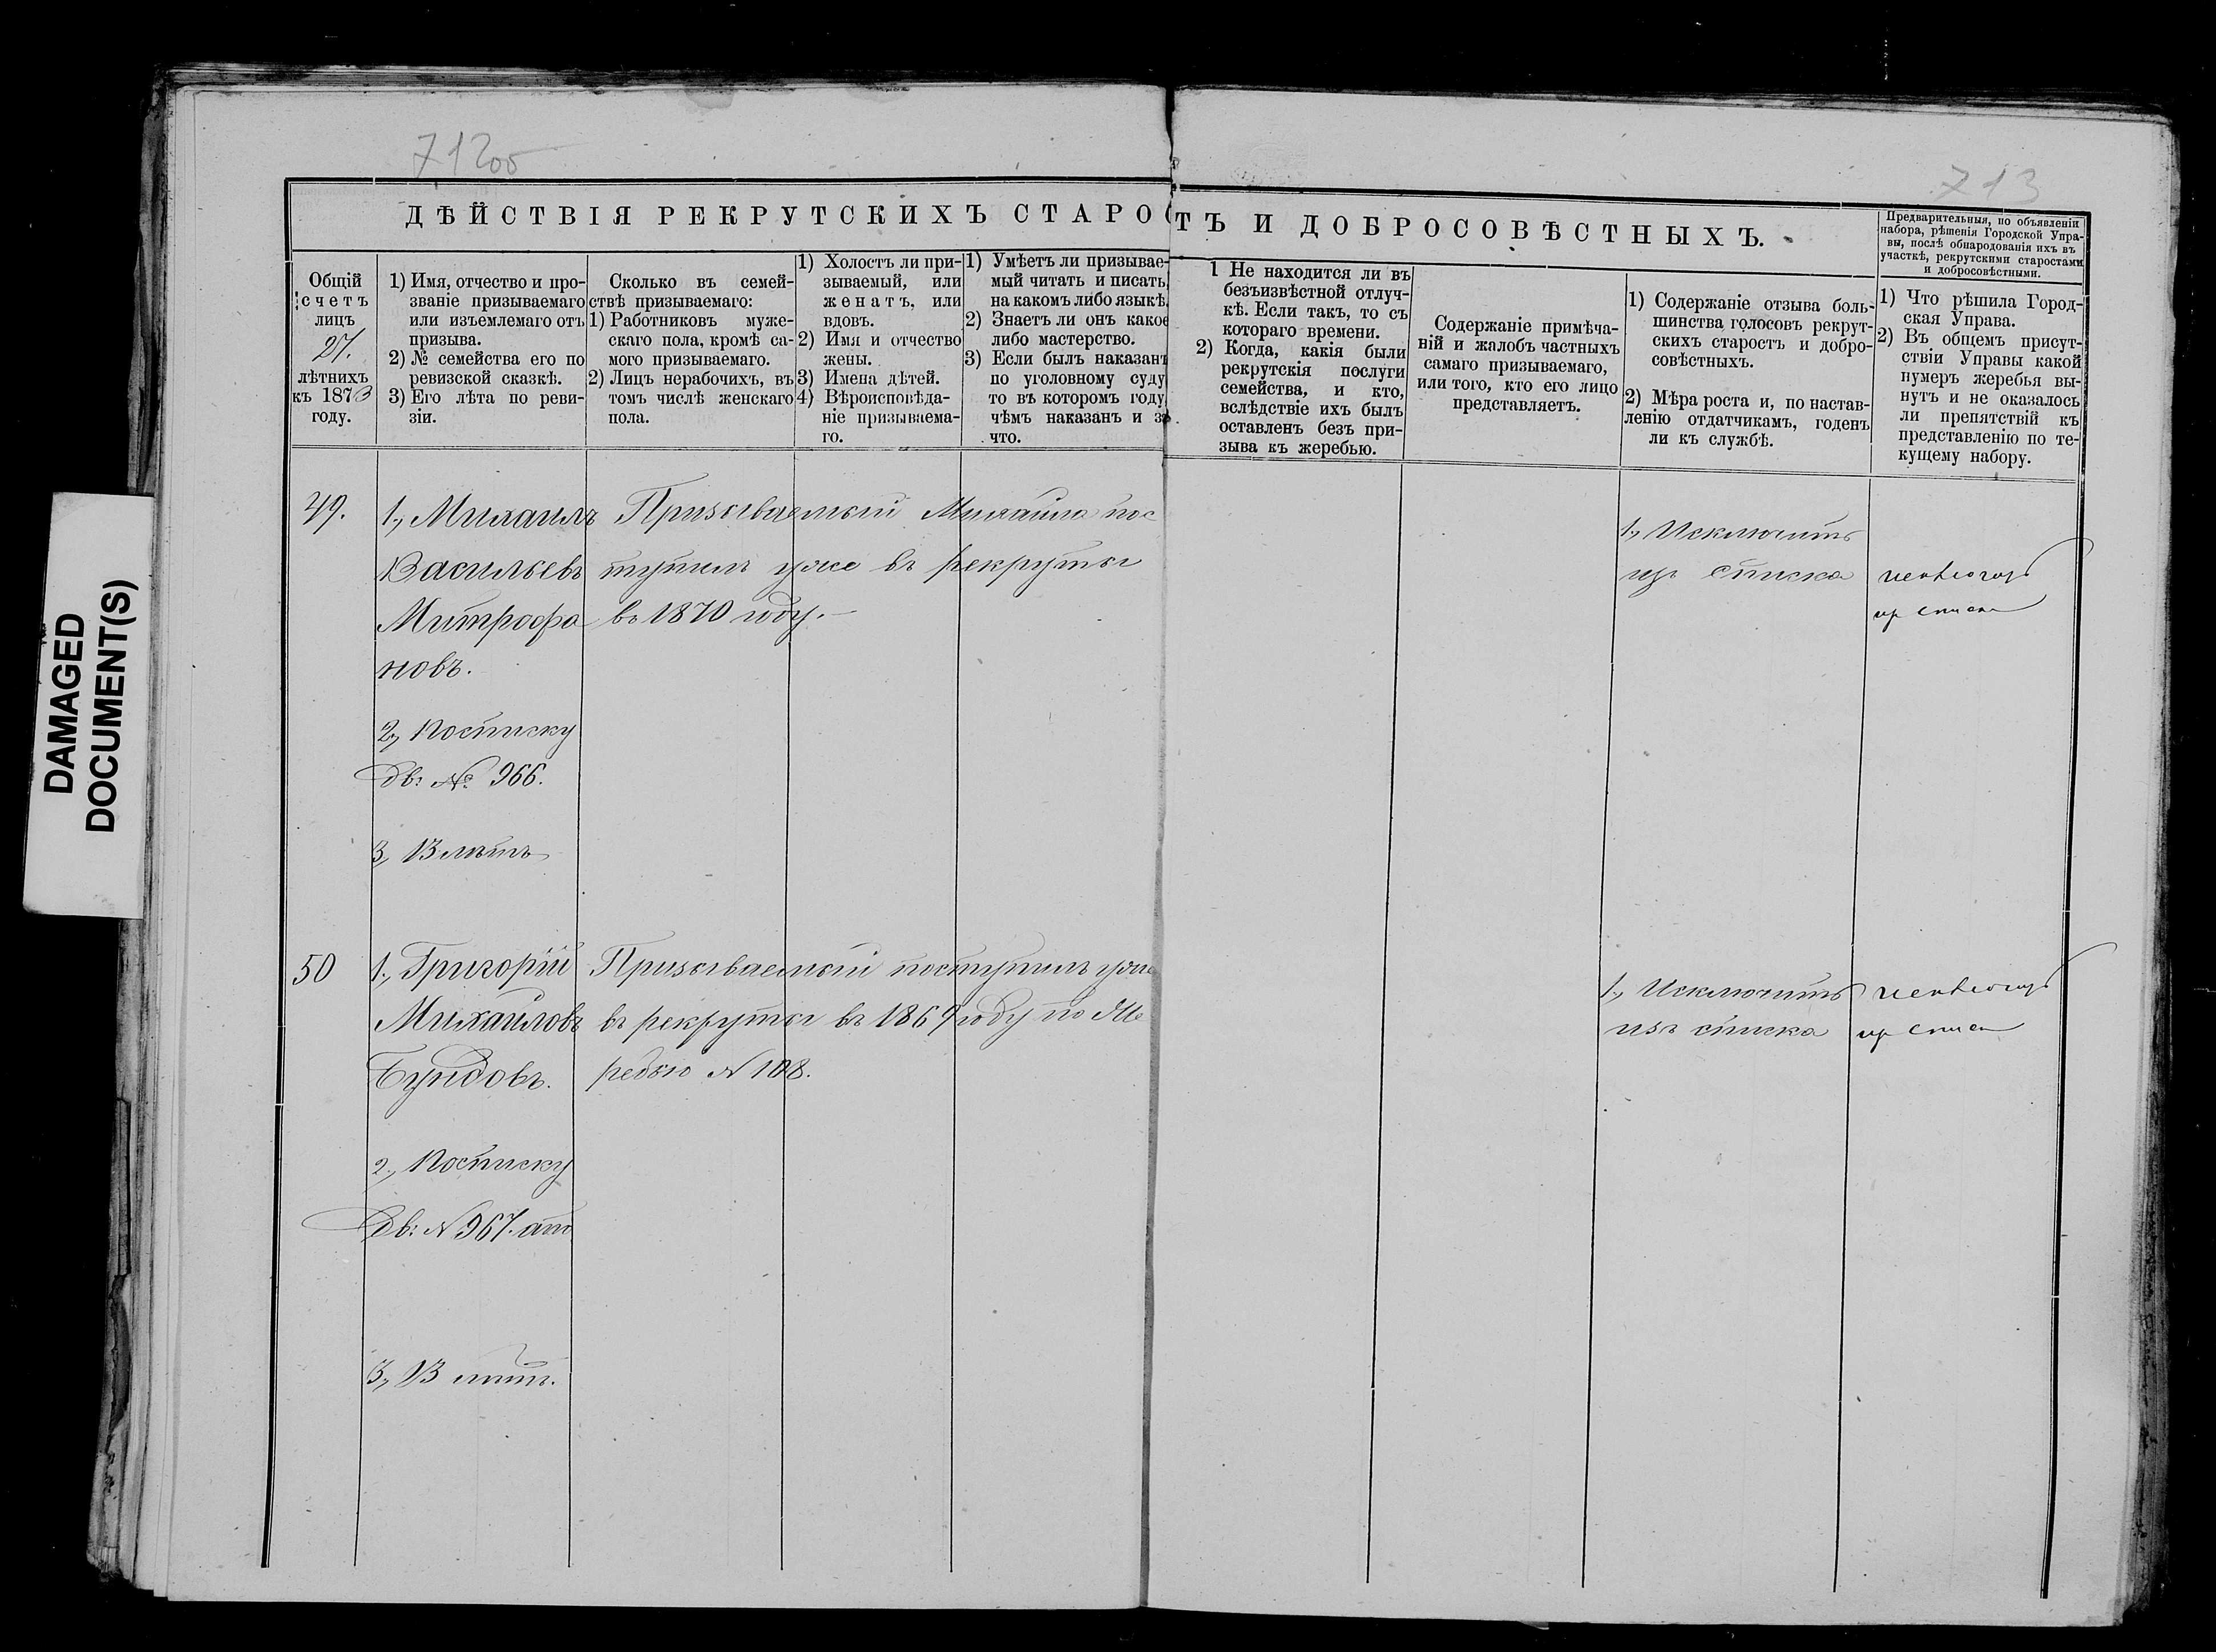 712об
713
DAMAGED
DOCUMENT(S)
ДѢЙСТВІЯ РЕКРУТСКИХЪ СТАРОСТЪ И ДОБРОСОВѢСТНЫХЪ.
Предварительныя, по объявленіи
набора, рѣшенія Городской Упра-
вы, послѣ обнародованія ихъ въ
участкѣ, рекрутскими старостами
и добросовѣстными.
Общій
счетъ
лицъ
27.
лѣтнихъ
къ 1873
году.
1) Имя, отчество и про-
званіе призываемаго
или изъемлемаго отъ
призыва.
2) № семейства его по
ревизской сказкѣ.
3) Его лѣта по реви-
зіи.
Сколько въ семей-
ствѣ призываемаго:
1) Работниковъ муже-
скаго пола, кромѣ са-
мого призываемаго.
2) Лицъ нерабочихъ, въ
томъ числѣ женскаго
пола.
1) Холостъ ли при-
зываемый, или
женатъ, или
вдовъ.
2) Имя и отчество
жены.
3) Имена дѣтей.
4) Вѣроисповѣда-
ніе призываема-
го.
1) Умѣетъ ли призывае-
мый читать и писать,
на какомъ либо языкѣ.
2) Знаетъ ли онъ какое
либо мастерство.
3) Если былъ наказанъ
по уголовному суду,
то въ которомъ году,
чѣмъ наказанъ и за
что.
1 Не находится ли въ
безъизвѣстной отлуч-
кѣ. Если такъ, то съ
котораго времени.
2) Когда, какія были
рекрутскія послуги
семейства, и кто,
вслѣдствіе ихъ былъ
оставленъ безъ при-
зыва къ жеребью.
Содержаніе примѣча-
ній и жалобъ частныхъ
самаго призываемаго,
или того, кто его лицо
представляетъ.
1) Содержаніе отзыва боль-
шинства голосовъ рекрут-
скихъ старостъ и добро-
совѣстныхъ.
2) Мѣра роста и, по настав-
ленію отдатчикамъ, годенъ
ли къ службѣ.
1) Что рѣшила Город-
ская Управа.
2) Въ общемъ присут-
ствіи Управы какой
нумеръ жеребья вы-
нутъ и не оказалось
ли препятствій къ
представленію по те-
кущему набору.
49.
1., Михаилъ
Васильевъ
Митрофа
новъ.
2., По списку
дв: № 966.
3., 13 лѣтъ
Призываемый Михаила пос
тупилъ уже въ рекруты
въ 1870 году. —
1., Исключить
изъ списка
исключить
изъ списка
50
1., Григорій
Михайловъ
Бундовъ.
2., По списку
дв: № 967.
3., 13 лѣтъ.
Призываемый поступилъ уже
въ рекруты въ 1869 году по Же
ребью № 108.
1., Исключить
изъ списка
исключить
изъ списка